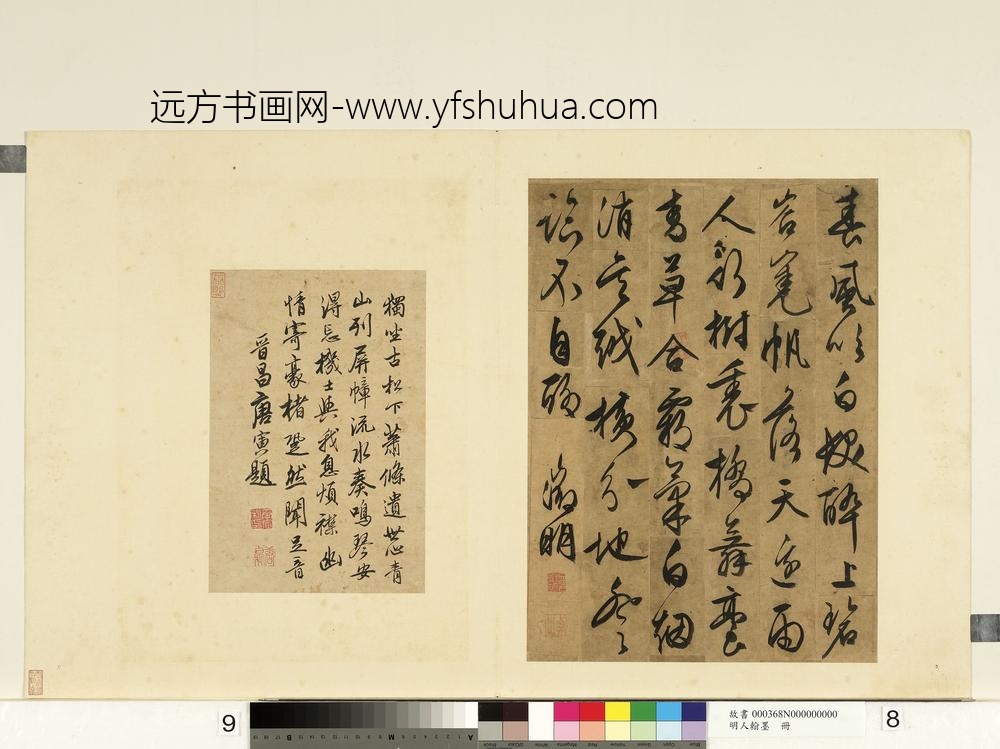 远方书画网-www.yfshuhua.com
春風吹白髮醉上碧
岧嶤帆落天邊雨
人樹裏橋舞臺
青草合霸氣白烟
消吳越橫分地登
臨不自聊 徵明
獨坐古松下蕭條遺世心青
山列屏幛流水奏鳴琴安
得忘機士與我息煩襟幽
情寄豪楮跫然聞足音
晉昌唐寅題
9
故書 000368N000000000
明人翰墨 冊
8